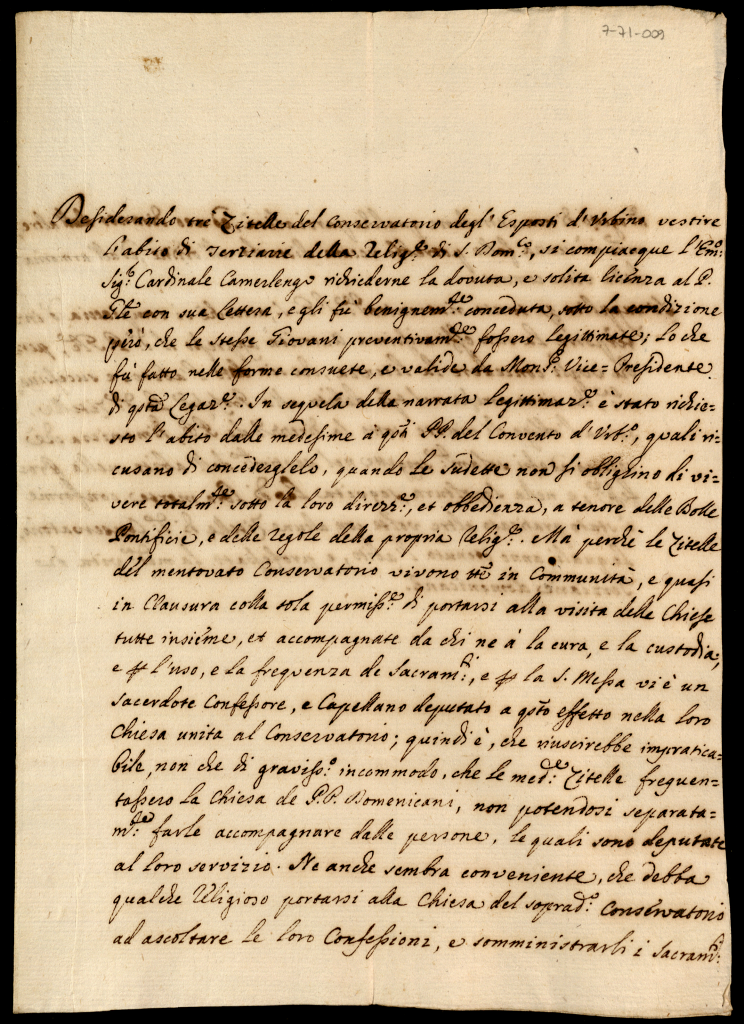 7-71-009
Desiderando trè Zitelle del Conservatorio degl' Esposti d'Urbino vestire
l'abito di Terziarie della Relig.e di S. Dom.co, si compiacque l'Em.o
Sig.r Cardinale Camerlengo richiederne la dovuta, e solita licenza al P.
Gle con sua Lettera, e gli fù benignem.te conceduta, sotto la condizione
però, che le stesse Giovani preventivam.te fossero legittimate; Lo che
fù fatto nelle forme consuete, e valide da Mons.r Vice=Presidente
di qsta Legaz.e. In sequela della narrata legittimaz.e è stato richie=
sto l'abito dalle medesime à qsti PP. del Convento d'Urb.o, quali ri=
cusano di concederglelo, quando le sudette non si oblighino di vi=
vere totalm.te sotto la loro direz.e, et obbedienza, a tenore delle Bolle
Pontificie, e delle regole della propria Relig.e. Mà perchè le Zitelle
del mentovato Conservatorio vivono tte in Communità, e quasi
in Clausura colla sola permiss.e di portarsi alla visita delle Chiese
tutte insieme, et accompagnate da chi ne à la cura, e la custodia;
e p l'uso, e la frequenza de Sacram.ti, e p la S. Messa vi è un
Sacerdote Confessore, e Capellano deputato a qsto effetto nella loro
Chiesa unita al Conservatorio; quindi è, che riuscirebbe impratica=
bile, non che di graviss.o incommodo, che le med.e Zitelle frequen=
tassero la Chiesa de P.P. Domenicani, non potendosi separata=
m.te farle accompagnare dalle persone, le quali sono deputate
al loro servizio. Ne anche sembra conveniente, che debba
qualche Religioso portarsi alla Chiesa del soprad.o Conservatorio
ad ascoltare le loro Confessioni, e somministrarli i Sacram.ti